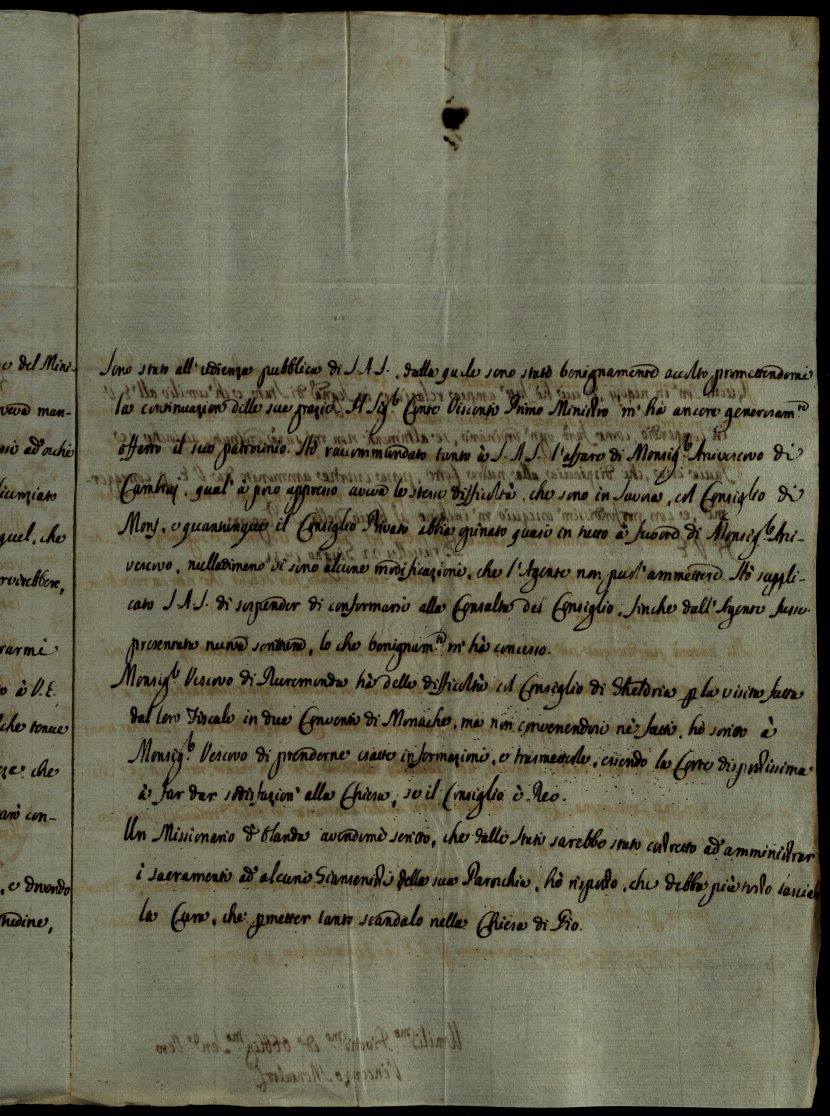 e del Mini-
veva man-
ad'occhi
licenziato
quel, che
rvirebbero,
rarmi
o à V.E.
che tenue
che
arò con-
, e dovendo
tudine,
Sono stato all'udienza pubblica di S.A.S., dalla quale sono stato benignamente accolto promettendomi
la continuazion delle sue grazie. Il Sig.r Conte Visconti Primo Ministro m'hà ancora generosam.te
offerto il suo patrocinio. Hò raccommandato tanto à S.A.S. l'affare di Monsig.r Arcivescovo di
Cambraj, qual' à poco appresso aveva le stesse difficoltà, che sono in Savona, col Consiglio di
Mons, e quantunque il Consiglio Privato abbia opinato quasi in tutto à favore di Monsig.r Arci-
vescovo, nulladimeno vi sono alcune modificazioni, che l'Agente non puol'ammettere. Hò suppli-
cato S.A.S. di sospender di conformarsi alla Consulta del Consiglio, sinche dall'Agente fusse
presentata nuova scrittura, lo che benignam.te m'hà concesso.
Monsig.r Vescovo di Ruremonda hà delle difficoltà col Consiglio di Gheldria p la visita fatta
dal loro Fiscale in due Conventi di Monache, ma non convenendosi ne' fatti, hò scritto à
Monsig.r Vescovo di prenderne esatte informazioni, e trasmetterle, essendo la Corte dispostissima
à far dar sodisfazion' alla Chiesa, se il Consiglio è Reo.
Un Missionario d'Olanda avendomi scritto, che dalli Stati sarebbe stato costretto ad'amministrar
i sacramenti ad'alcuni Giansenisti della sua Parochia, hò risposto, che debba più tosto lasciar
la Cura, che pmetter tanto scandalo nella Chiesa di Dio.